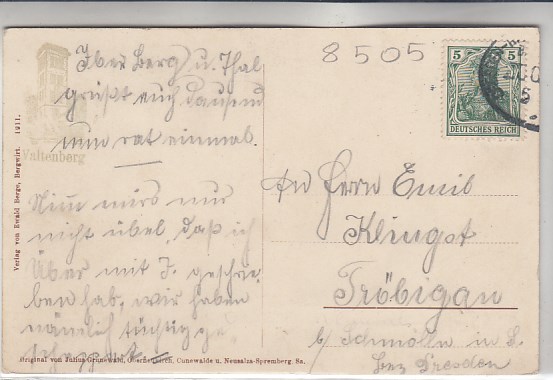 8505
Über Berg u. Thal
grüßt euch Tausend
nun rat einmal.
Valtenberg
Nimm mirs nur
nicht übel, daß ich
Über mit J. geschrie-
ben hab, wir haben
nämlich tüchtig ge-
schappert.
An Herrn Emil
Klingst
Tröbigau
b/ Schmölln in S.
bez Dresden
5 5
DEUTSCHES REICH
Verlag von Ewald Berge, Bergwirt. 1911.
Original von Julius Grunewald, Cunewalde u. Neusalza-Spremberg Sa.